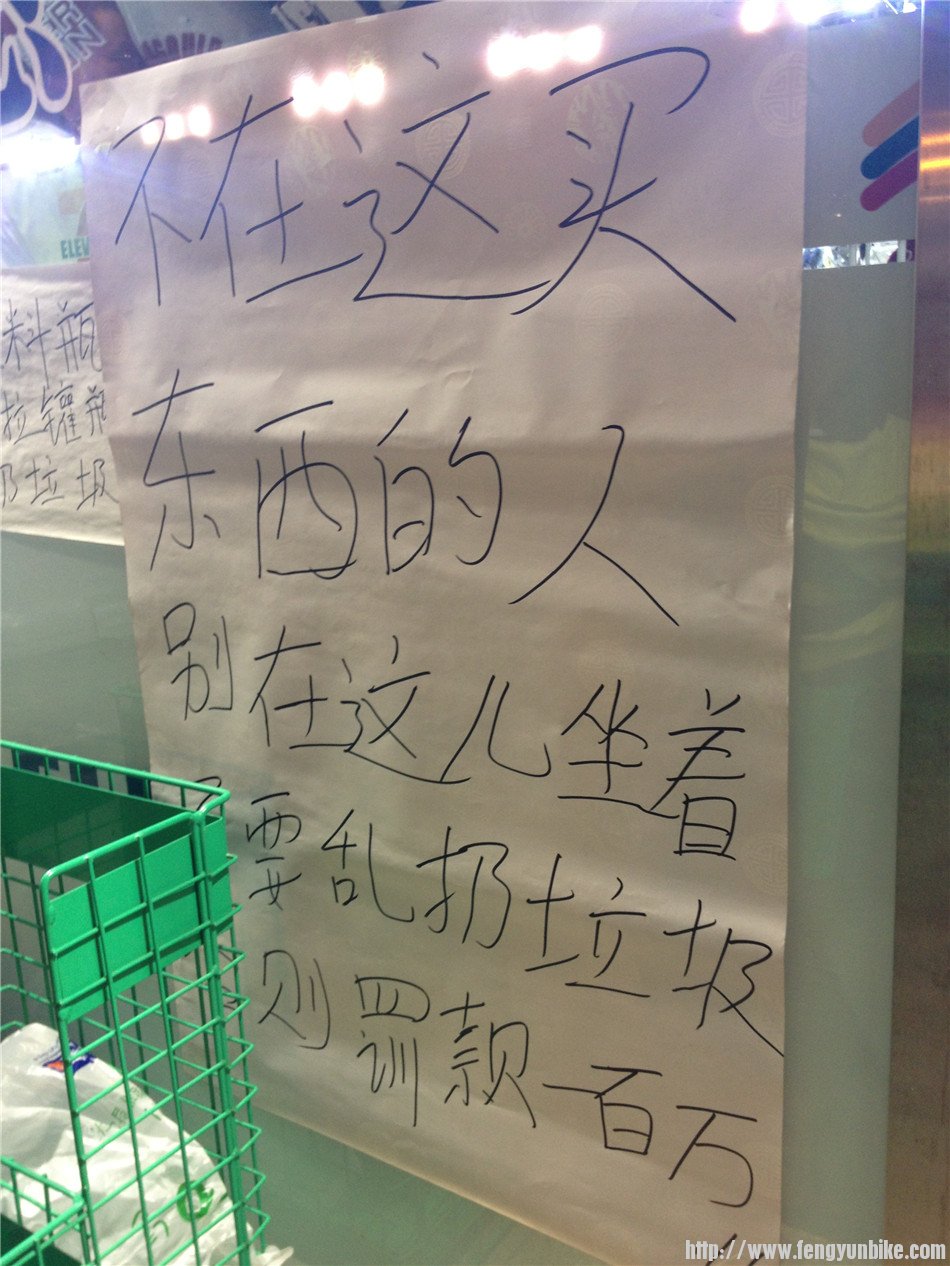 不在这买
东西的人
别在这儿坐着
要乱扔垃圾
则罚款一百万
料瓶
拉罐瓶
扔垃圾
ELEV
http://www.fengyunbike.com